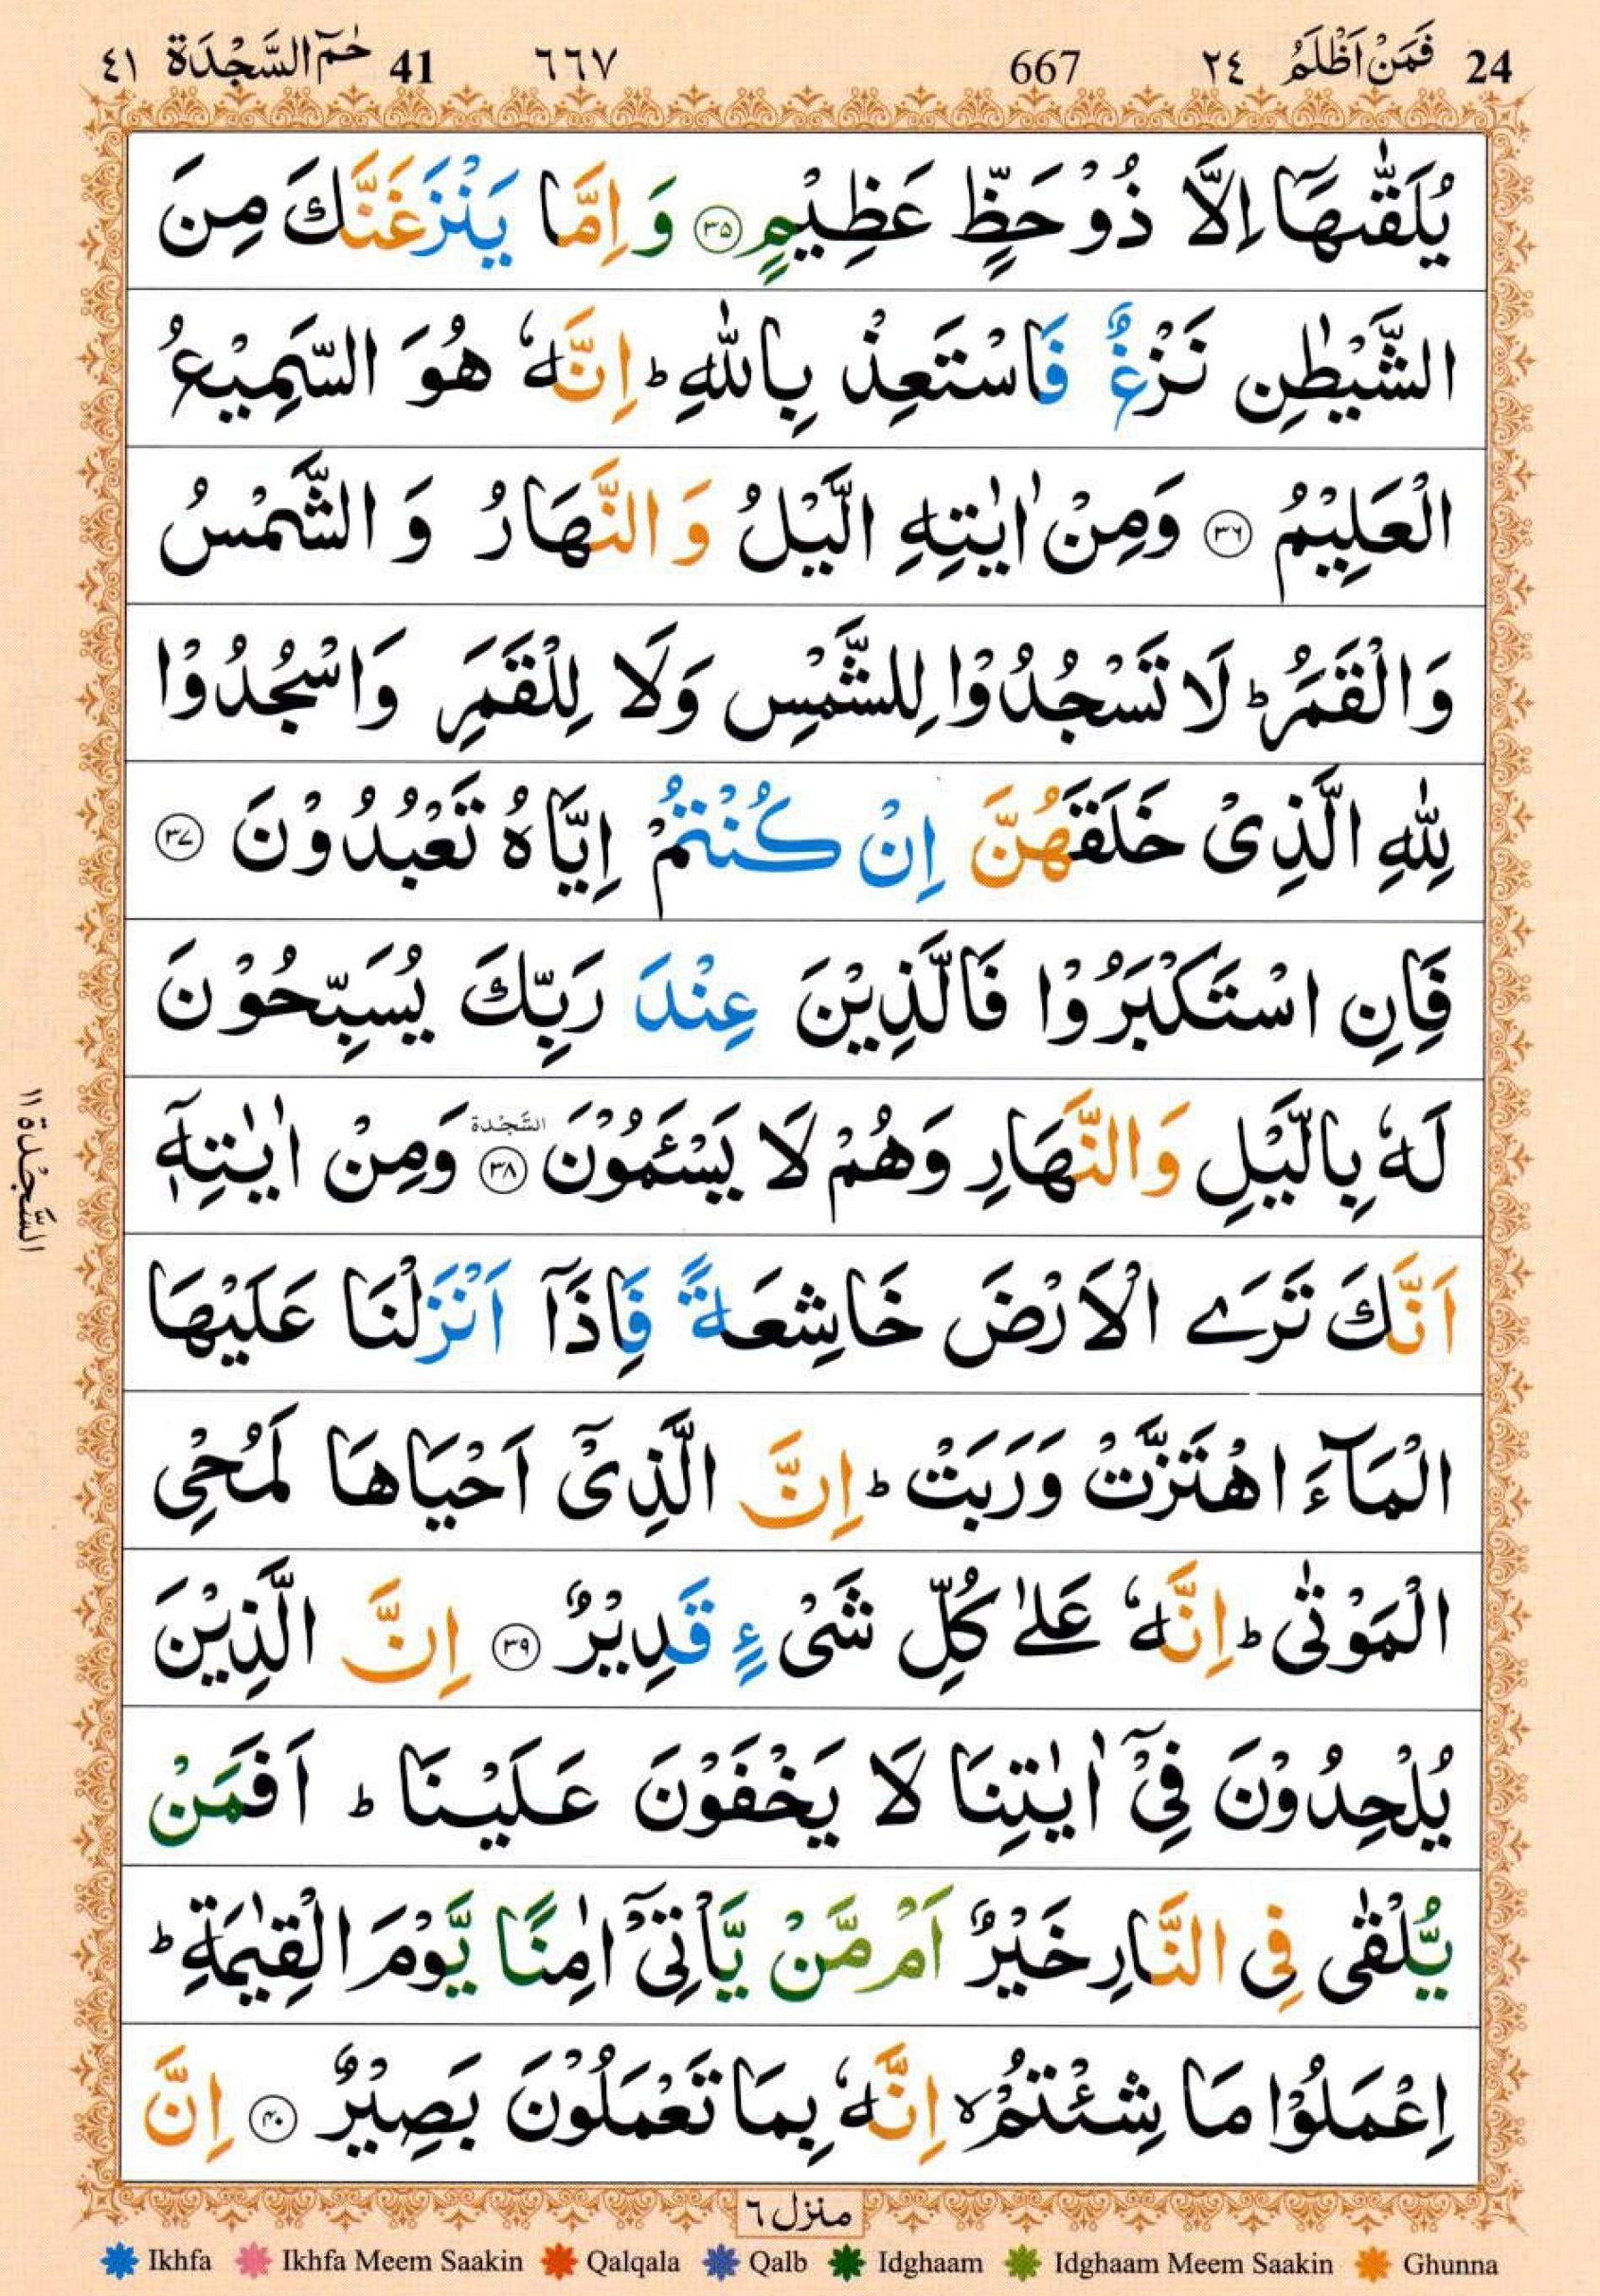 24 فَمَنْ اَظْلَمُ ٢٤ 667 ٦٦٧ 41 حٰمٓ السَّجْدَة ٤١
يُلَقّٰىهَاۤ اِلَّا ذُوْ حَظٍّ عَظِيْمٍ ۝۳۵ وَ اِمَّا يَنْزَغَنَّكَ مِنَ
الشَّيْطٰنِ نَزْغٌ فَاسْتَعِذْ بِاللّٰهِ ؕ اِنَّهٗ هُوَ السَّمِيْعُ
الْعَلِيْمُ ۝۳۶ وَمِنْ اٰيٰتِهِ الَّيْلُ وَ النَّهَارُ وَ الشَّمْسُ
وَالْقَمَرُ ؕ لَا تَسْجُدُوْا لِلشَّمْسِ وَلَا لِلْقَمَرِ وَاسْجُدُوْا
لِلّٰهِ الَّذِىْ خَلَقَهُنَّ اِنْ كُنْتُمْ اِيَّاهُ تَعْبُدُوْنَ ۝۳۷
فَاِنِ اسْتَكْبَرُوْا فَالَّذِيْنَ عِنْدَ رَبِّكَ يُسَبِّحُوْنَ
لَهٗ بِالَّيْلِ وَالنَّهَارِ وَهُمْ لَا يَسْـَٔمُوْنَ السَّجْدَة ۝۳۸ وَمِنْ اٰيٰتِهٖۤ
اَنَّكَ تَرَى الْاَرْضَ خَاشِعَةً فَاِذَاۤ اَنْزَلْنَا عَلَيْهَا
الْمَآءَ اهْتَزَّتْ وَرَبَتْ ؕ اِنَّ الَّذِىْۤ اَحْيَاهَا لَمُحْىِ
الْمَوْتٰى ؕ اِنَّهٗ عَلٰى كُلِّ شَىْءٍ قَدِيْرٌ ۝۳۹ اِنَّ الَّذِيْنَ
يُلْحِدُوْنَ فِىْۤ اٰيٰتِنَا لَا يَخْفَوْنَ عَلَيْنَا ؕ اَفَمَنْ
يُّلْقٰى فِى النَّارِ خَيْرٌ اَمْ مَّنْ يَّاْتِىْۤ اٰمِنًا يَّوْمَ الْقِيٰمَةِ ؕ
اِعْمَلُوْا مَا شِئْتُمْ ۙ اِنَّهٗ بِمَا تَعْمَلُوْنَ بَصِيْرٌ ۝۴۰ اِنَّ
السَّجْدَة ١١
منزل ٦
Ikhfa Ikhfa Meem Saakin Qalqala Qalb Idghaam Idghaam Meem Saakin Ghunna